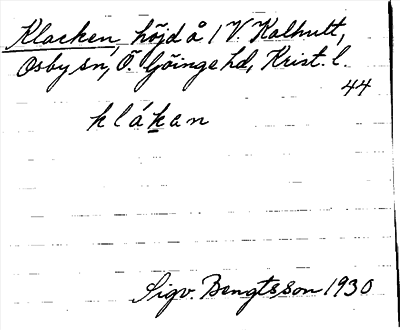 Klacken, höjd å 1 V. Kalhult,
Osby sn, Ö. Göinge hd, Krist. l.
44
klákan
Sigv. Bengtsson 1930